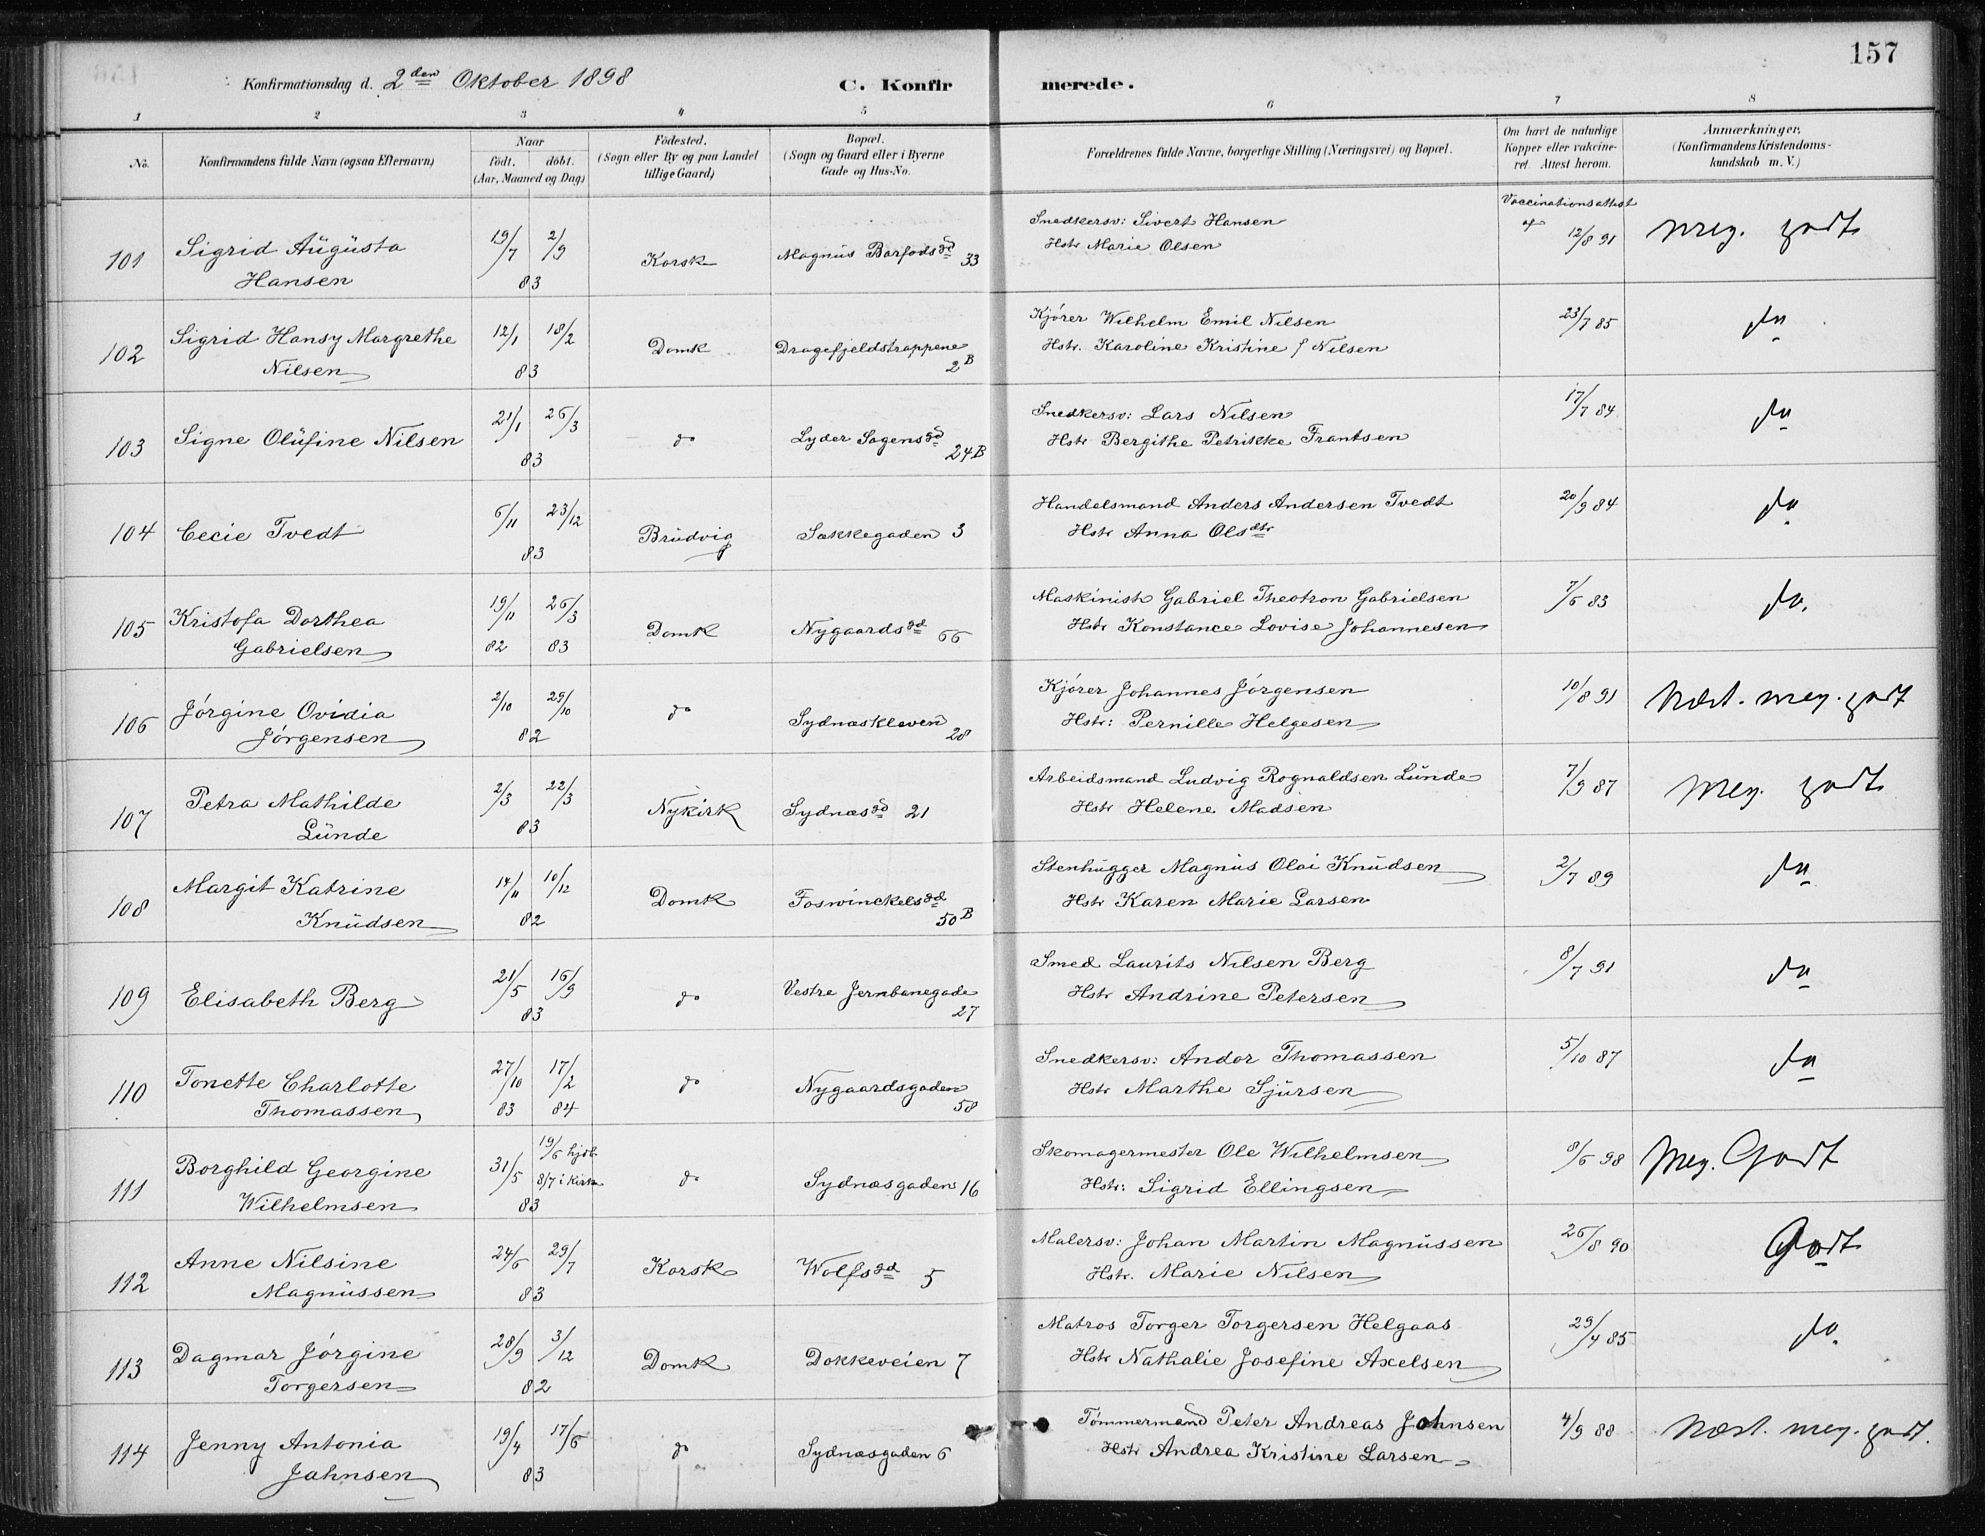 157
Konfirmationsdag d. 2den Oktober 1898
C. Konfirmerede.
1 2 3 4 5 6 7 8
No.
Konfirmandens fulde Navn (ogsaa Efternavn)
Naar
født. døbt.
(Aar, Maaned og Dag)
Fødested.
(Sogn eller By og paa Landet
tillige Gaard)
Bopæl.
(Sogn og Gaard eller i Byerne
Gade og Hus-No.
Forældrenes fulde Navne, borgerlige Stilling (Næringsvei) og Bopæl.
Om havt de naturlige
Kopper eller vakcine-
ret. Attest herom.
Anmærkninger,
(Konfirmandens Kristendoms-
kundskab m. V.)
101 Sigrid Augusta Hansen 19/7 2/9 83 Korsk Magnus Barfodsgd 33 Snedkersv: Sivert Hansen
Hstr Marie Olsen Vaccinationsattest af 12/8 91 meg. godt
102 Sigrid Hansy Margrethe Nilsen 12/1 18/2 83 Domk Dragefjeldstrappene 2B Kjører Wilhelm Emil Nilsen
Hstr. Karoline Kristine f Nilsen 23/7 85 do
103 Signe Olufine Nilsen 21/1 26/3 83 do Lyder Sagensgd 24B Snedkersv: Lars Nilsen
Hstr Bergithe Petrikke Frantsen 17/7 84 do
104 Cecie Tvedt 6/11 23/12 83 Brudvig Sækkegaden 3 Handelsmand Anders Andersen Tvedt
Hstr Anna Olsdtr 20/9 84 do
105 Kristofa Dorthea Gabrielsen 19/11 82 26/3 83 Domk Nygaardsgd 66 Maskinist Gabriel Theotron Gabrielsen
Hstr Konstance Lovise Johannesen 7/6 83 do.
106 Jørgine Ovidia Jørgensen 2/10 29/10 82 do Sydnæskleven 28 Kjører Johannes Jørgensen
Hstr: Pernille Helgesen 10/8 91 Næst. meg. godt
107 Petra Mathilde Lunde 2/3 22/3 83 Nykirk Sydnæsgd 21 Arbeidsmand Ludvig Rognaldsen Lunde
Hstr Helene Madsen 7/9 87 meg. godt
108 Margit Katrine Knudsen 14/11 10/12 82 Domk Foswinckelsgd 50B Stenhugger Magnus Olai Knudsen
Hstr Karen Marie Larsen 2/7 89 do
109 Elisabeth Berg 21/5 16/9 83 do Vestre Jernbanegade 27 Smed Laurits Nilsen Berg
Hstr Andrine Petersen 8/7 91 do
110 Tonette Charlotte Thomassen 27/10 83 17/2 84 do Nygaardsgaden 58 Snedkersv: Andor Thomassen
Hstr Marthe Sjursen 5/10 87 do
111 Borghild Georgine Wilhelmsen 31/5 19/6 hjdb. 8/7 i kirke 83 do Sydnæsgaden 16 Skomagermester Ole Wilhelmsen
Hstr: Sigrid Ellingsen 8/6 98 Meg. Godt
112 Anne Nilsine Magnussen 24/6 29/7 83 Korsk Wolfsgd 5 Malersv: Johan Martin Magnussen
Hstr. Marie Nilsen 26/8 90 Godt
113 Dagmar Jørgine Torgersen 28/9 3/12 82 Domk Dokkeveien 7 Matros Torger Torgersen Helgaas
Hstr Nathalie Josefine Axelsen 29/4 85 do.
114 Jenny Antonia Jahnsen 19/4 17/6 83 do Sydnæsgaden 6 Tømmermand Peter Andreas Johnsen
Hstr Andrea Kristine Larsen 4/9 88 Næst. meg. godt.